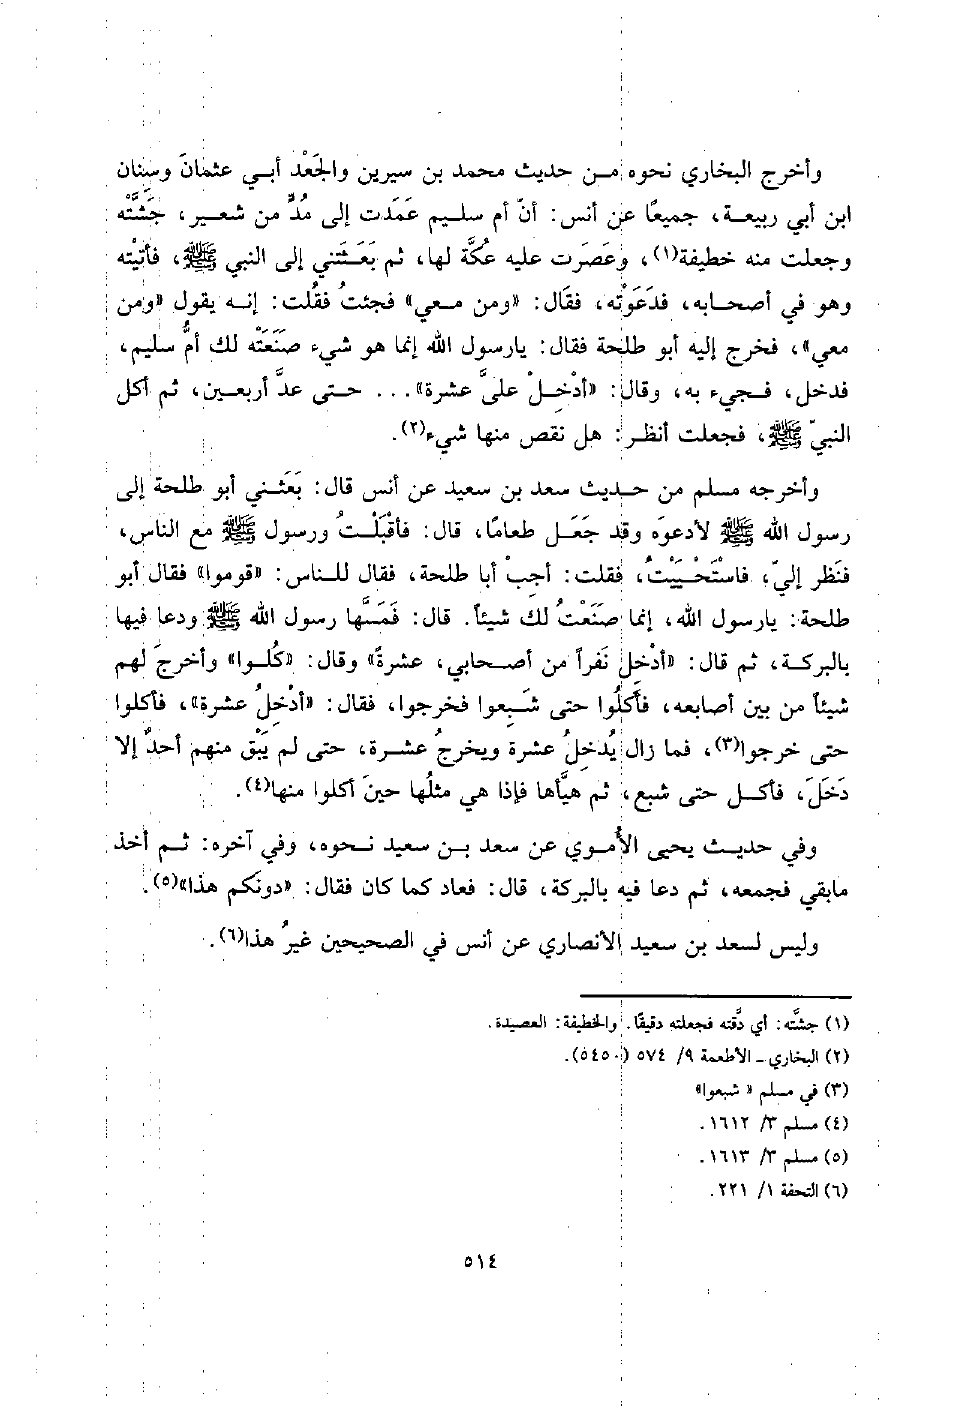 وأخرج البخاري نحوه من حديث محمد بن سيرين والجَعْد أبي عثمانَ وسِنان
ابن أبي ربيعة، جميعًا عن أنس: أنّ أم سليم عَمَدَت إلى مُدٍّ من شعير، جَشَّتْه
وجعلت منه خطيفة(١)، وعَصَرَت عليه عُكَّة لها، ثم بَعَثَتني إلى النبي ﷺ، فأتيْته
وهو في أصحابه، فدَعَوْتُه، فقال: «ومن معي» فجئتُ فقُلت: إنه يقول «ومن
معي»، فخرج إليه أبو طلحة فقال: يارسول الله إنما هو شيء صَنَعَتْه لك أمُّ سليم،
فدخل، فجيء به، وقال: «أدْخِلْ عليَّ عشرة»... حتى عدَّ أربعين، ثم أكل
النبيّ ﷺ، فجعلت أنظر: هل نقص منها شيء(٢).
وأخرجه مسلم من حديث سعد بن سعيد عن أنس قال: بَعَثَني أبو طلحة إلى
رسول الله ﷺ لأدعوَه وقد جَعَل طعامًا، قال: فأقْبَلْتُ ورسول ﷺ مع الناس،
فنَظر إليّ، فاستَحْيَيْتُ، فقلت: أجِبْ أبا طلحة، فقال للناس: «قوموا» فقال أبو
طلحة: يارسول الله، إنما صَنَعْتُ لك شيئاً. قال: فَمَسَّها رسول الله ﷺ ودعا فيها
بالبركة، ثم قال: «أدْخِل نَفَراً من أصحابي، عشرةً» وقال: «كُلوا» وأخرجَ لهم
شيئاً من بين أصابعه، فأكَلُوا حتى شَبِعوا فخرجوا، فقال: «أدْخِلْ عشرة»، فأكلوا
حتى خرجوا(٣)، فما زال يُدخِلُ عشرة ويخرجُ عشرة، حتى لم يَبْق منهم أحدٌ إلا
دَخَلَ، فأكل حتى شبع، ثم هيَّأها فإذا هي مثلُها حينَ أكلوا منها(٤).
وفي حديث يحيى الأُموي عن سعد بن سعيد نحوه، وفي آخره: ثم أخذ
مابقي فجمعه، ثم دعا فيه بالبركة، قال: فعاد كما كان فقال: «دونكم هذا»(٥).
وليس لسعد بن سعيد الأنصاري عن أنس في الصحيحين غيرُ هذا(٦).
(١) جشَّته: أي دقّته فجعلته دقيقًا. والخطيفة: العصيدة.
(٢) البخاري - الأطعمة ٩/ ٥٧٤ (٥٤٥٠).
(٣) في مسلم « شبعوا»
(٤) مسلم ٣/ ١٦١٢.
(٥) مسلم ٣/ ١٦١٣.
(٦) التحفة ١/ ٢٢١.
٥١٤